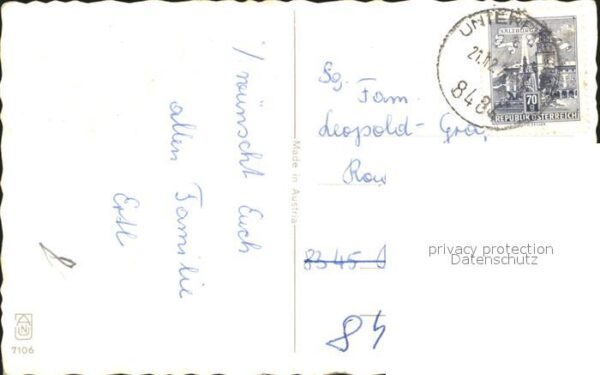 / wünscht Euch
allen Familie
Ertl
7106
Made in Austria
UNTER
21.12
848
SALZBURG
70
REPUBLIK ÖSTERREICH
Sg. Fam.
Leopold-
8345
84
privacy protection
Datenschutz